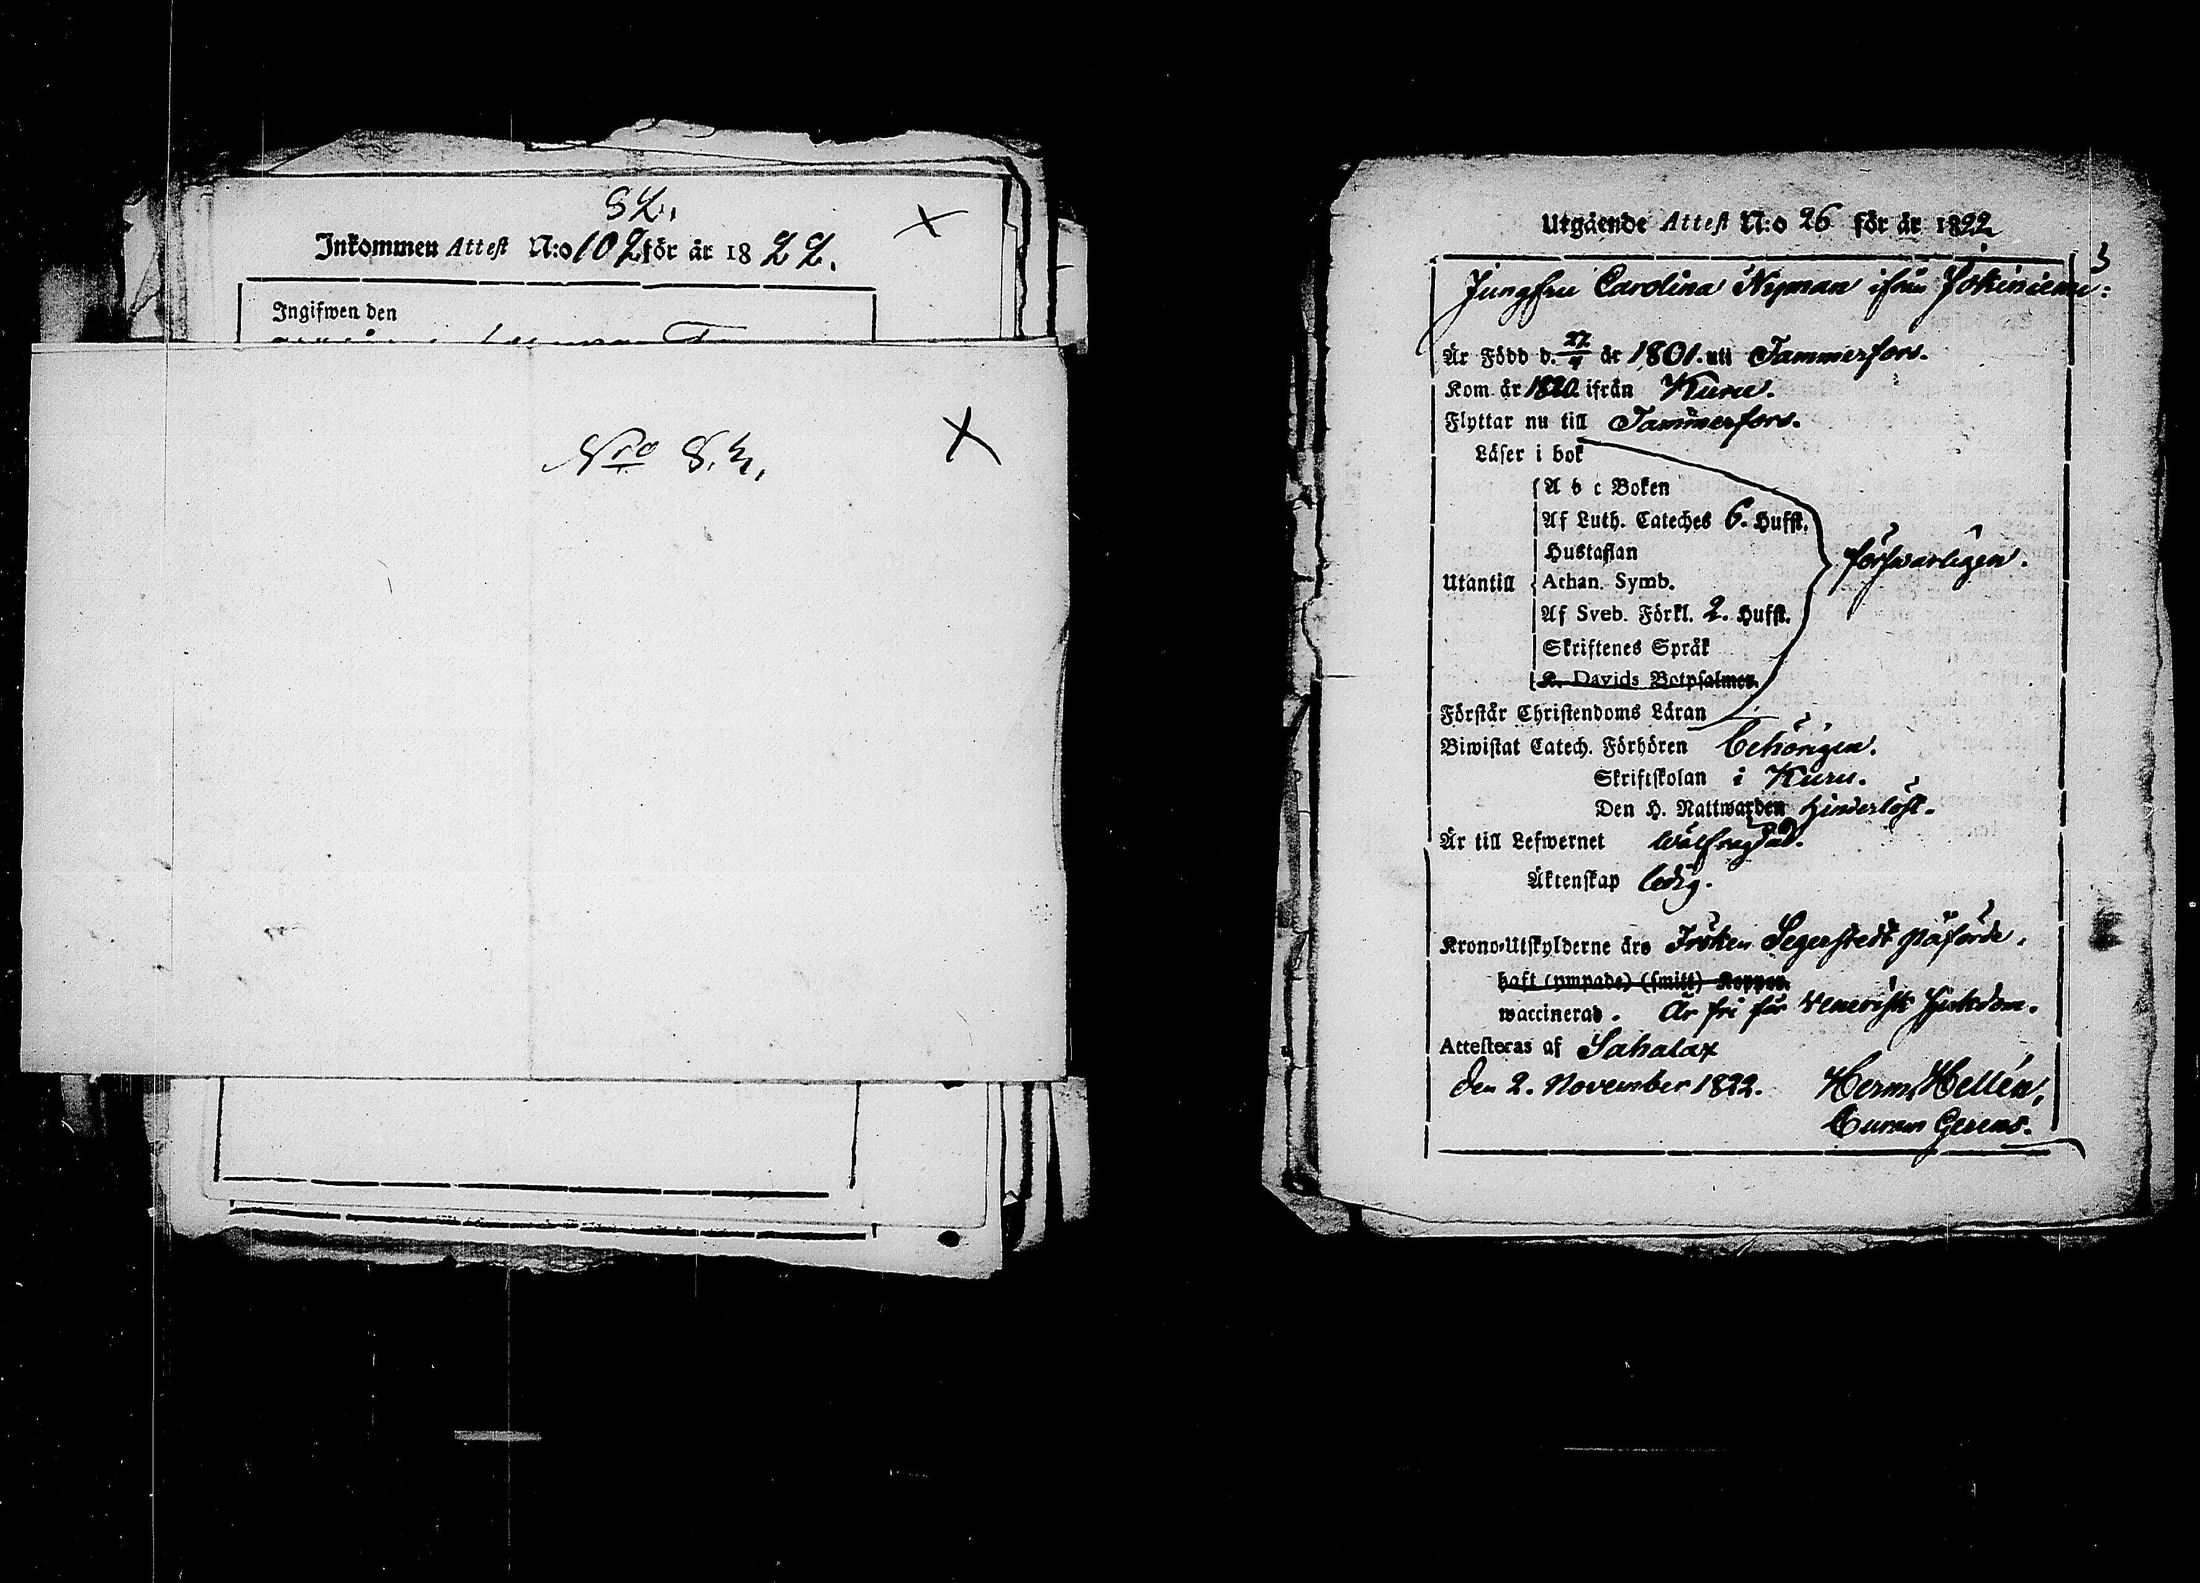 82.
Inkommen Attest N:o 102 för år 1822.
Ingifwen den
Nro 82.
Utgående Attest N:o 26 för år 1822
3
Jungfru Carolina Nyman ifrån Jokiniemi:
Är Född d. 27/4 år 1801. uti Tammerfors.
Kom år 1820 ifrån Kuru.
Flyttar nu till Tammerfors.
Läser i bok
A b c Boken
Af Luth. Cateches 6. Hufst.
Hustaflan
försvarligen.
Utantill Athan. Symb.
Af Sveb. Förkl. 2. Hufst.
Skriftenes Språk
K. Davids Botpsalmer.
Förstår Christendoms Läran
Biwistat Catech. Förhören behörigen.
Skriftskolan i Kuru.
Den H. Nattwarden hinderlöst.
Är till Lefwernet wälfregdad.
Äktenskap ledig.
Krono-Utskylderne äro Fröken Segerstedt påförde.
haft (ympade) (smitt) Koppor.
waccinerad. Är fri för Venerisk sjukdom.
Attesteras af Sahalax
den 2. November 1822. Herm. Hellén,
Curam Gerens.